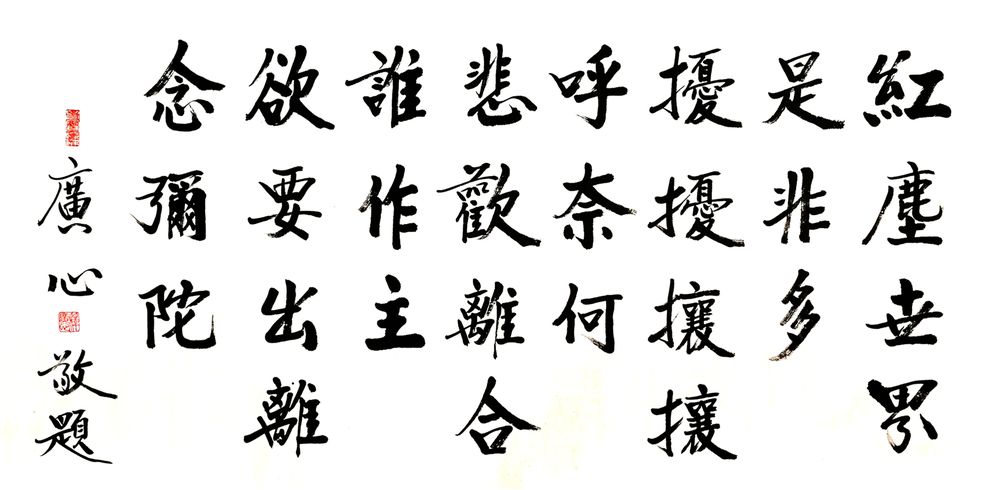 紅塵世界
是非多
擾擾攘攘
呼奈何
悲歡離合
誰作主
欲要出離
念彌陀
廣心敬題